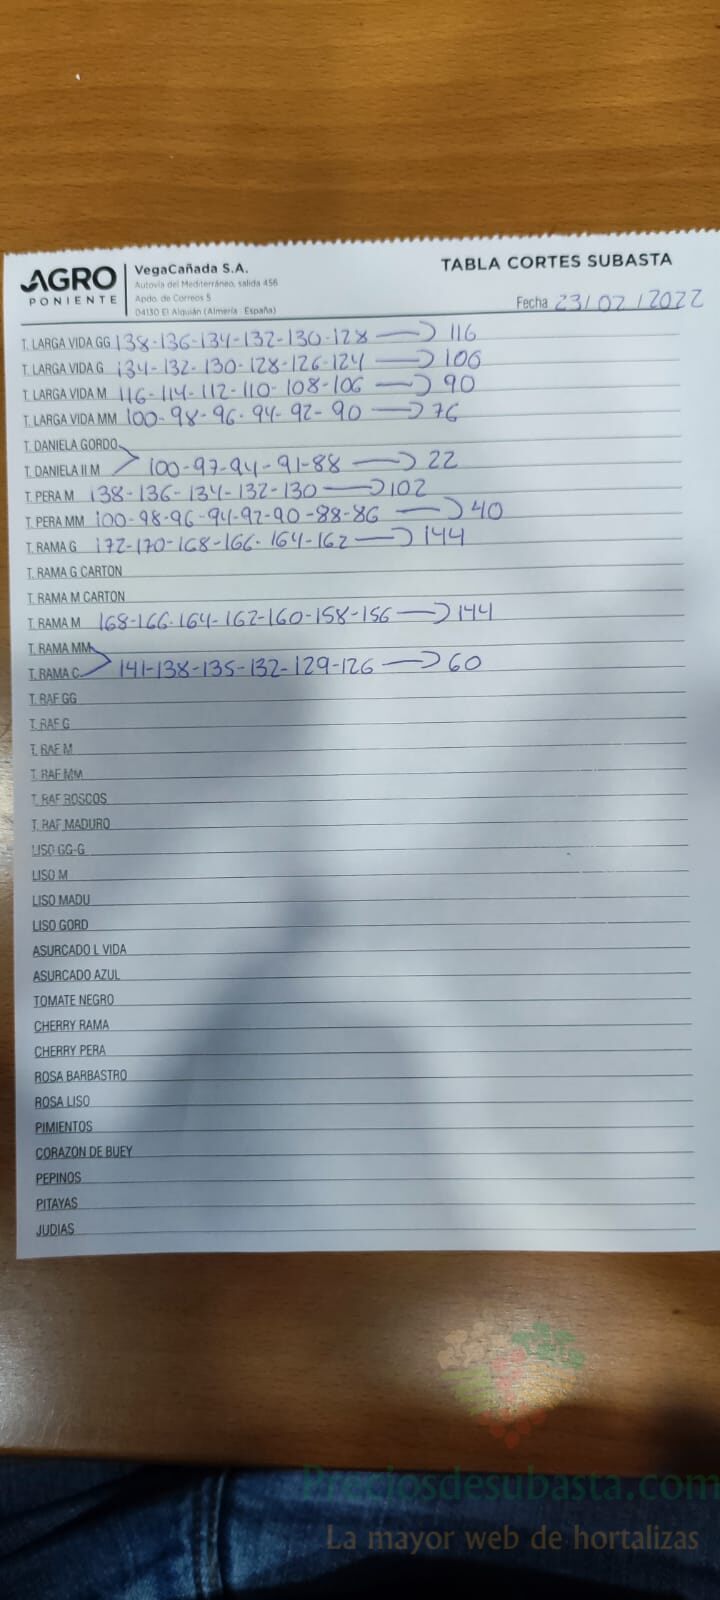 AGRO
PONIENTE
VegaCañada S.A.
Autovía del Mediterráneo, salida 456
Apdo. de Correos 5
04130 El Alquián (Almería · España)
TABLA CORTES SUBASTA
Fecha 23/02/2022
T. LARGA VIDA GG 138-136-134-132-130-128 → 116
T. LARGA VIDA G 134-132-130-128-126-124 → 106
T. LARGA VIDA M 116-114-112-110-108-106 → 90
T. LARGA VIDA MM 100-98-96-94-92-90 → 76
T. DANIELA GORDO
T. DANIELA II M 100-97-94-91-88 → 22
T. PERA M 138-136-134-132-130 → 102
T. PERA MM 100-98-96-94-92-90-88-86 → 40
T. RAMA G 172-170-168-166-164-162 → 144
T. RAMA G CARTON
T. RAMA M CARTON
T. RAMA M 168-166-164-162-160-158-156 → 144
T. RAMA MM
T. RAMA C 141-138-135-132-129-126 → 60
T. RAF GG
T. RAF G
T. RAF M
T. RAF MM
T. RAF ROSCOS
T. RAF MADURO
LISO GG-G
LISO M
LISO MADU
LISO GORD
ASURCADO L VIDA
ASURCADO AZUL
TOMATE NEGRO
CHERRY RAMA
CHERRY PERA
ROSA BARBASTRO
ROSA LISO
PIMIENTOS
CORAZON DE BUEY
PEPINOS
PITAYAS
JUDIAS
Preciosdesubasta.com
La mayor web de hortalizas